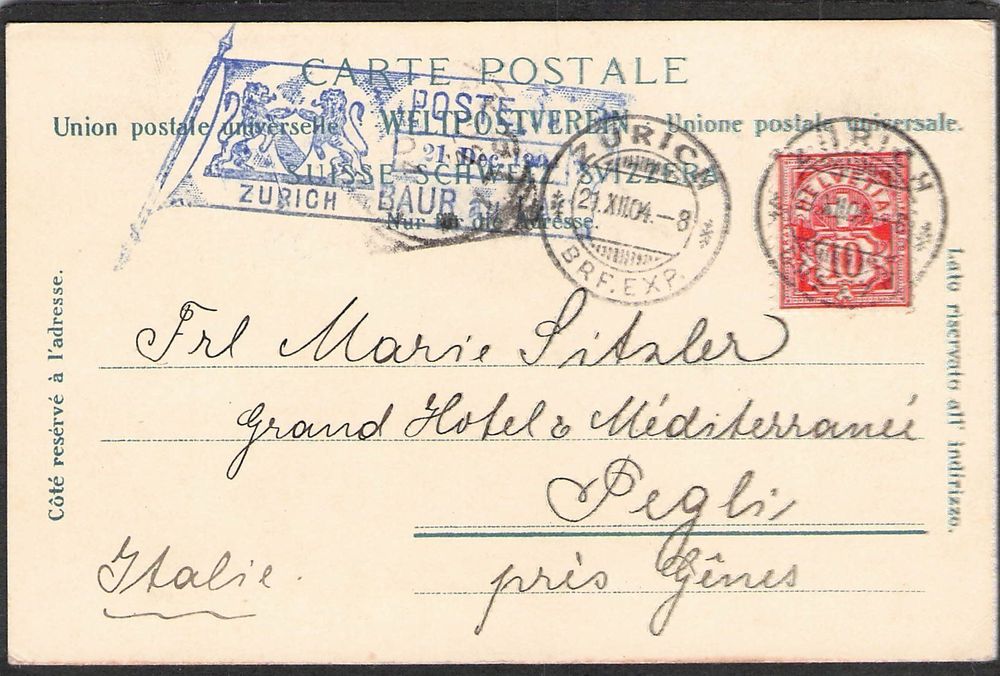 CARTE POSTALE
Union postale universelle. WELTPOSTVEREIN Unione postale universale.
SUISSE SCHWEIZ SVIZZERA
Nur für die Adresse.
POSTE
21. Dec.
ZURICH BAUR
ZÜRICH
21.XII.04.-8
BRF.EXP.
ZÜRICH
HELVETIA
10
Côté reservé à l'adresse.
Lato riservato all' indirizzo.
Frl Marie Sitzler
Grand Hotel & Méditerranée
Pegli
près Gênes
Italie.